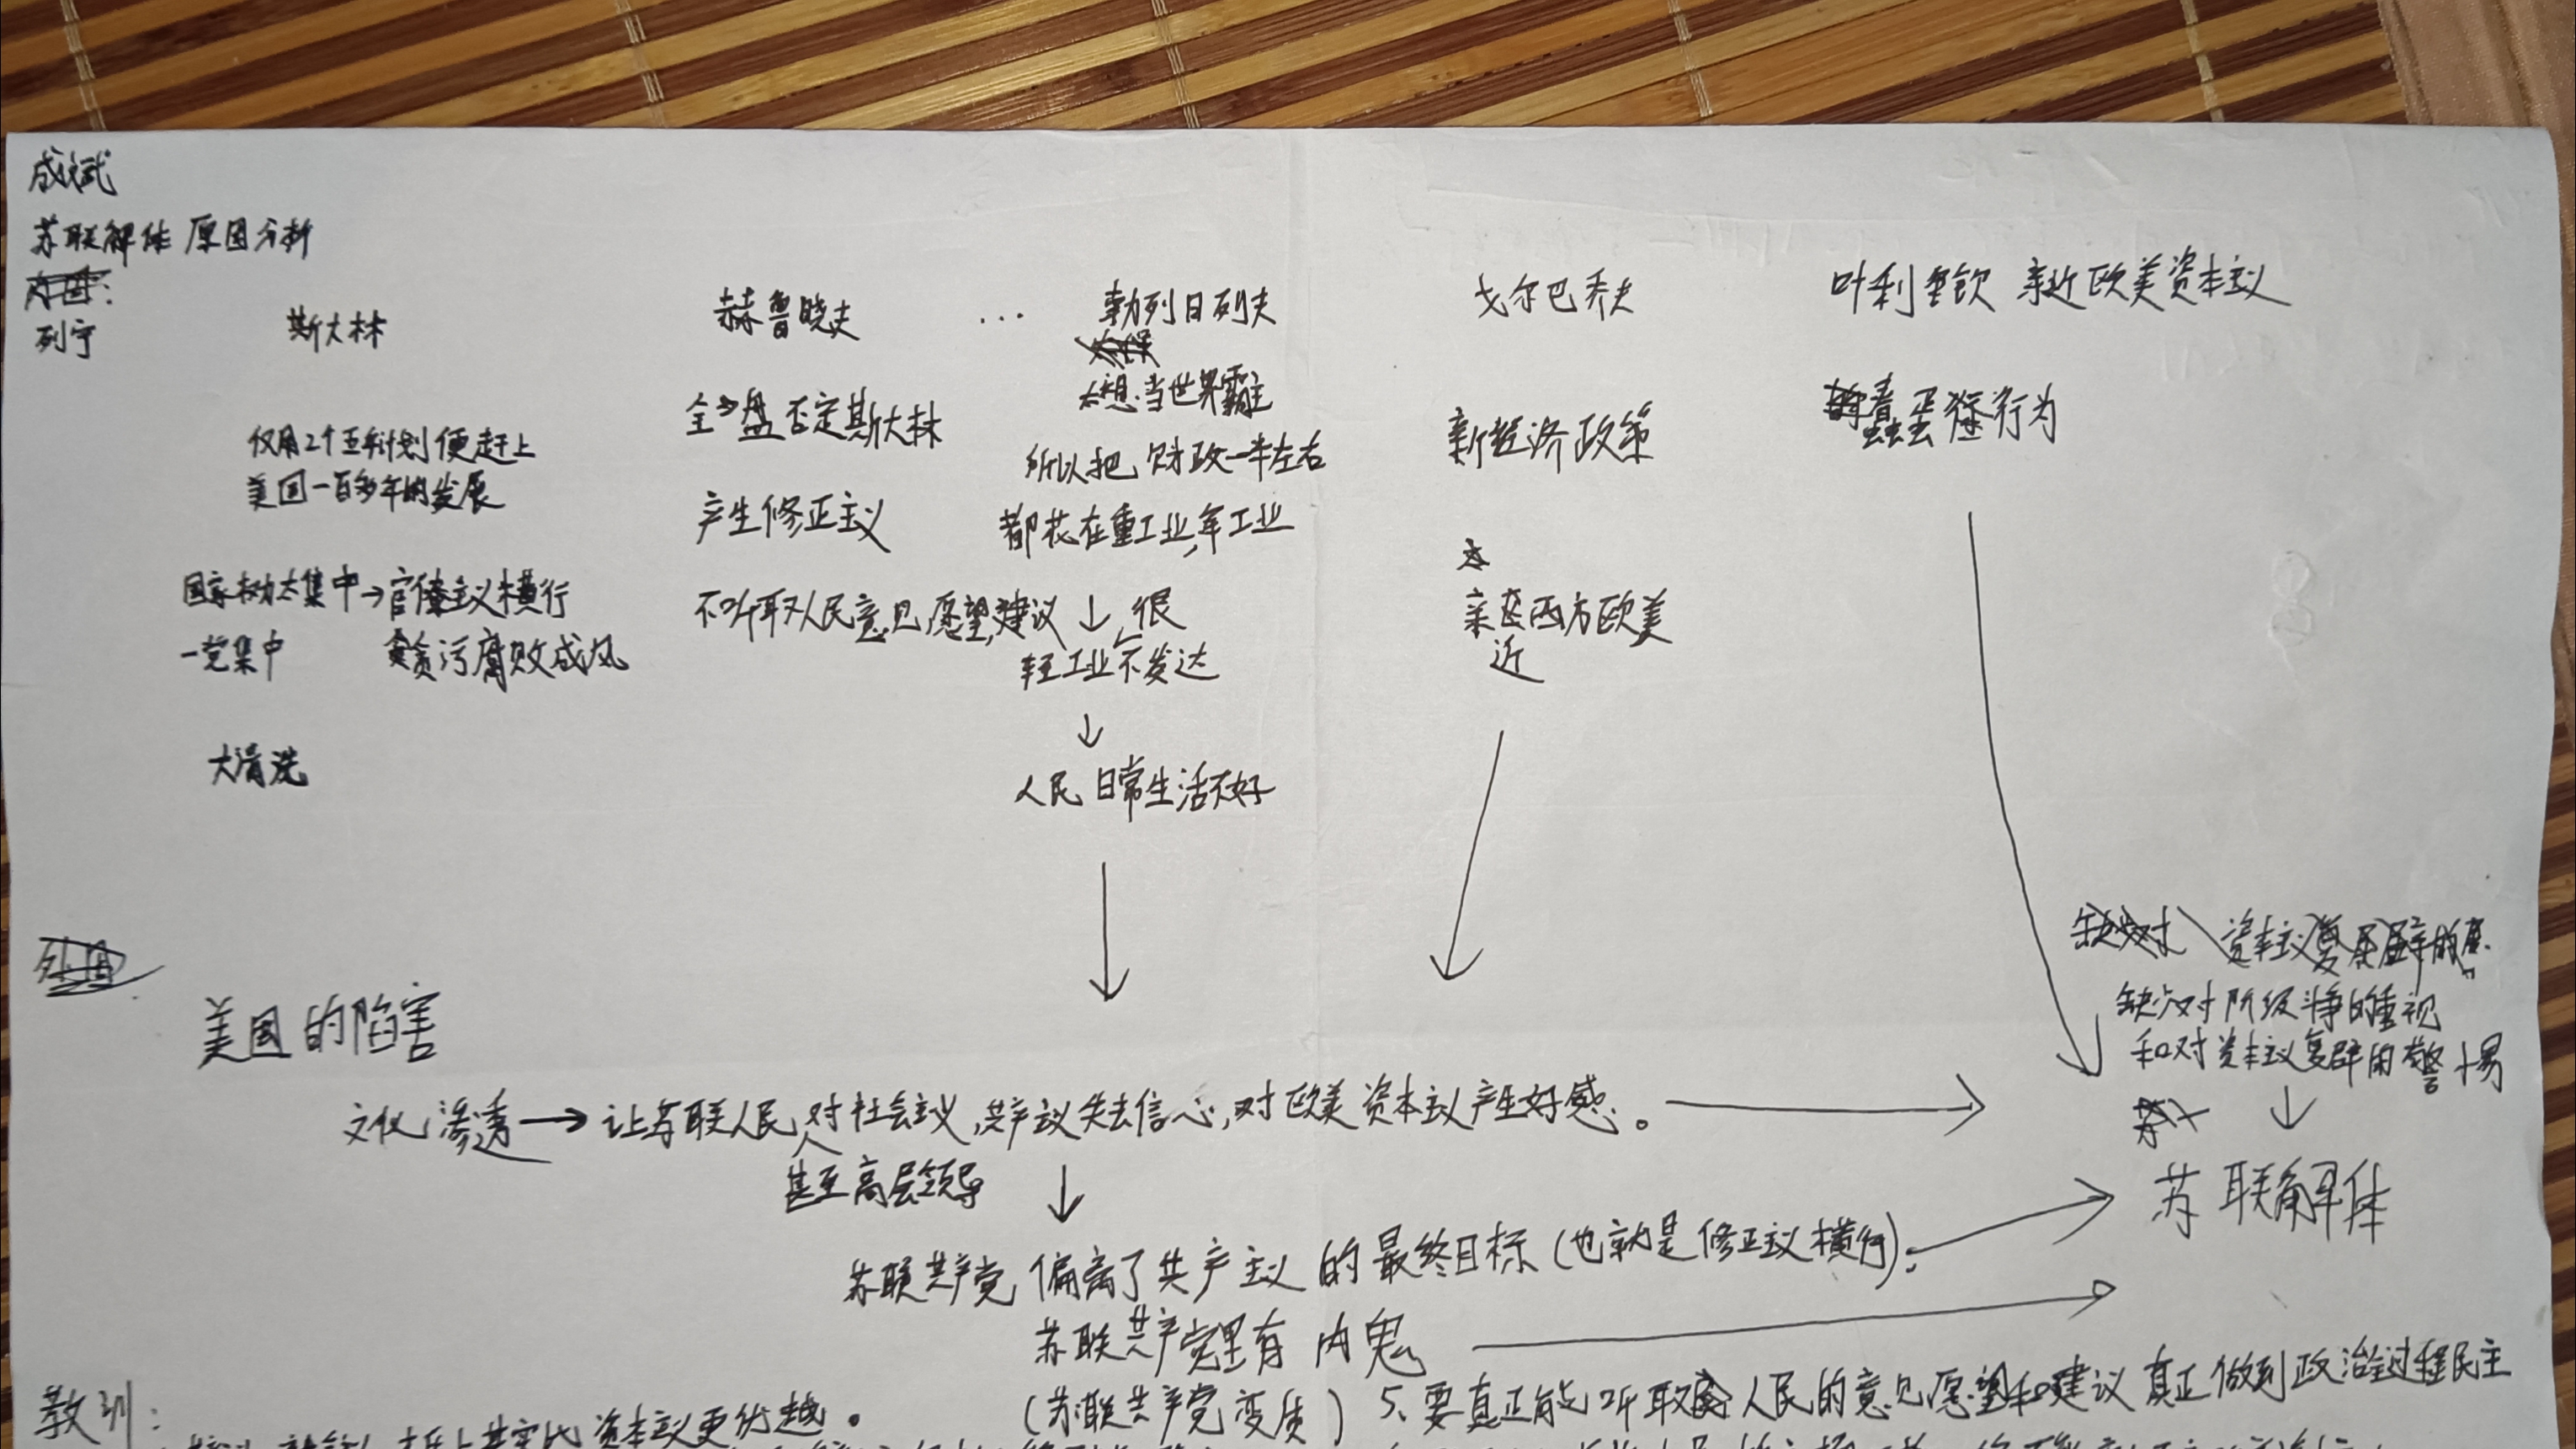 成斌
苏联解体 原因分析
内因:
列宁
斯大林
仅用2个五年计划便赶上
美国一百多年的发展
国家权力太集中→官僚主义横行
一党集中 贪污腐败成风
大清洗
赫鲁晓夫
全盘否定斯大林
产生修正主义
不听取人民意见,愿望,建议
...
勃列日列夫
太想当世界霸主
所以把财政一半左右
都花在重工业,军工业
↓ 很
轻工业不发达
↓
人民日常生活不好
戈尔巴乔夫
新经济政策
亲近西方欧美
叶利钦 亲近欧美资本主义
蠢蛋行为
外因
美国的陷害
文化渗透→让苏联人民对社会主义,共产主义失去信心,对欧美资本主义产生好感。
甚至高层领导
↓
苏联共产党偏离了共产主义的最终目标(也就是修正主义横行).
苏联共产党里有内鬼
(苏联共产党变质)
缺少对资本主义复辟的
缺少对阶级斗争的重视
和对资本主义复辟的警惕
↓
苏联解体
教训:
资本主义更优越。
5、要真正能听取人民的意见愿望和建议真正做到政治全过程民主